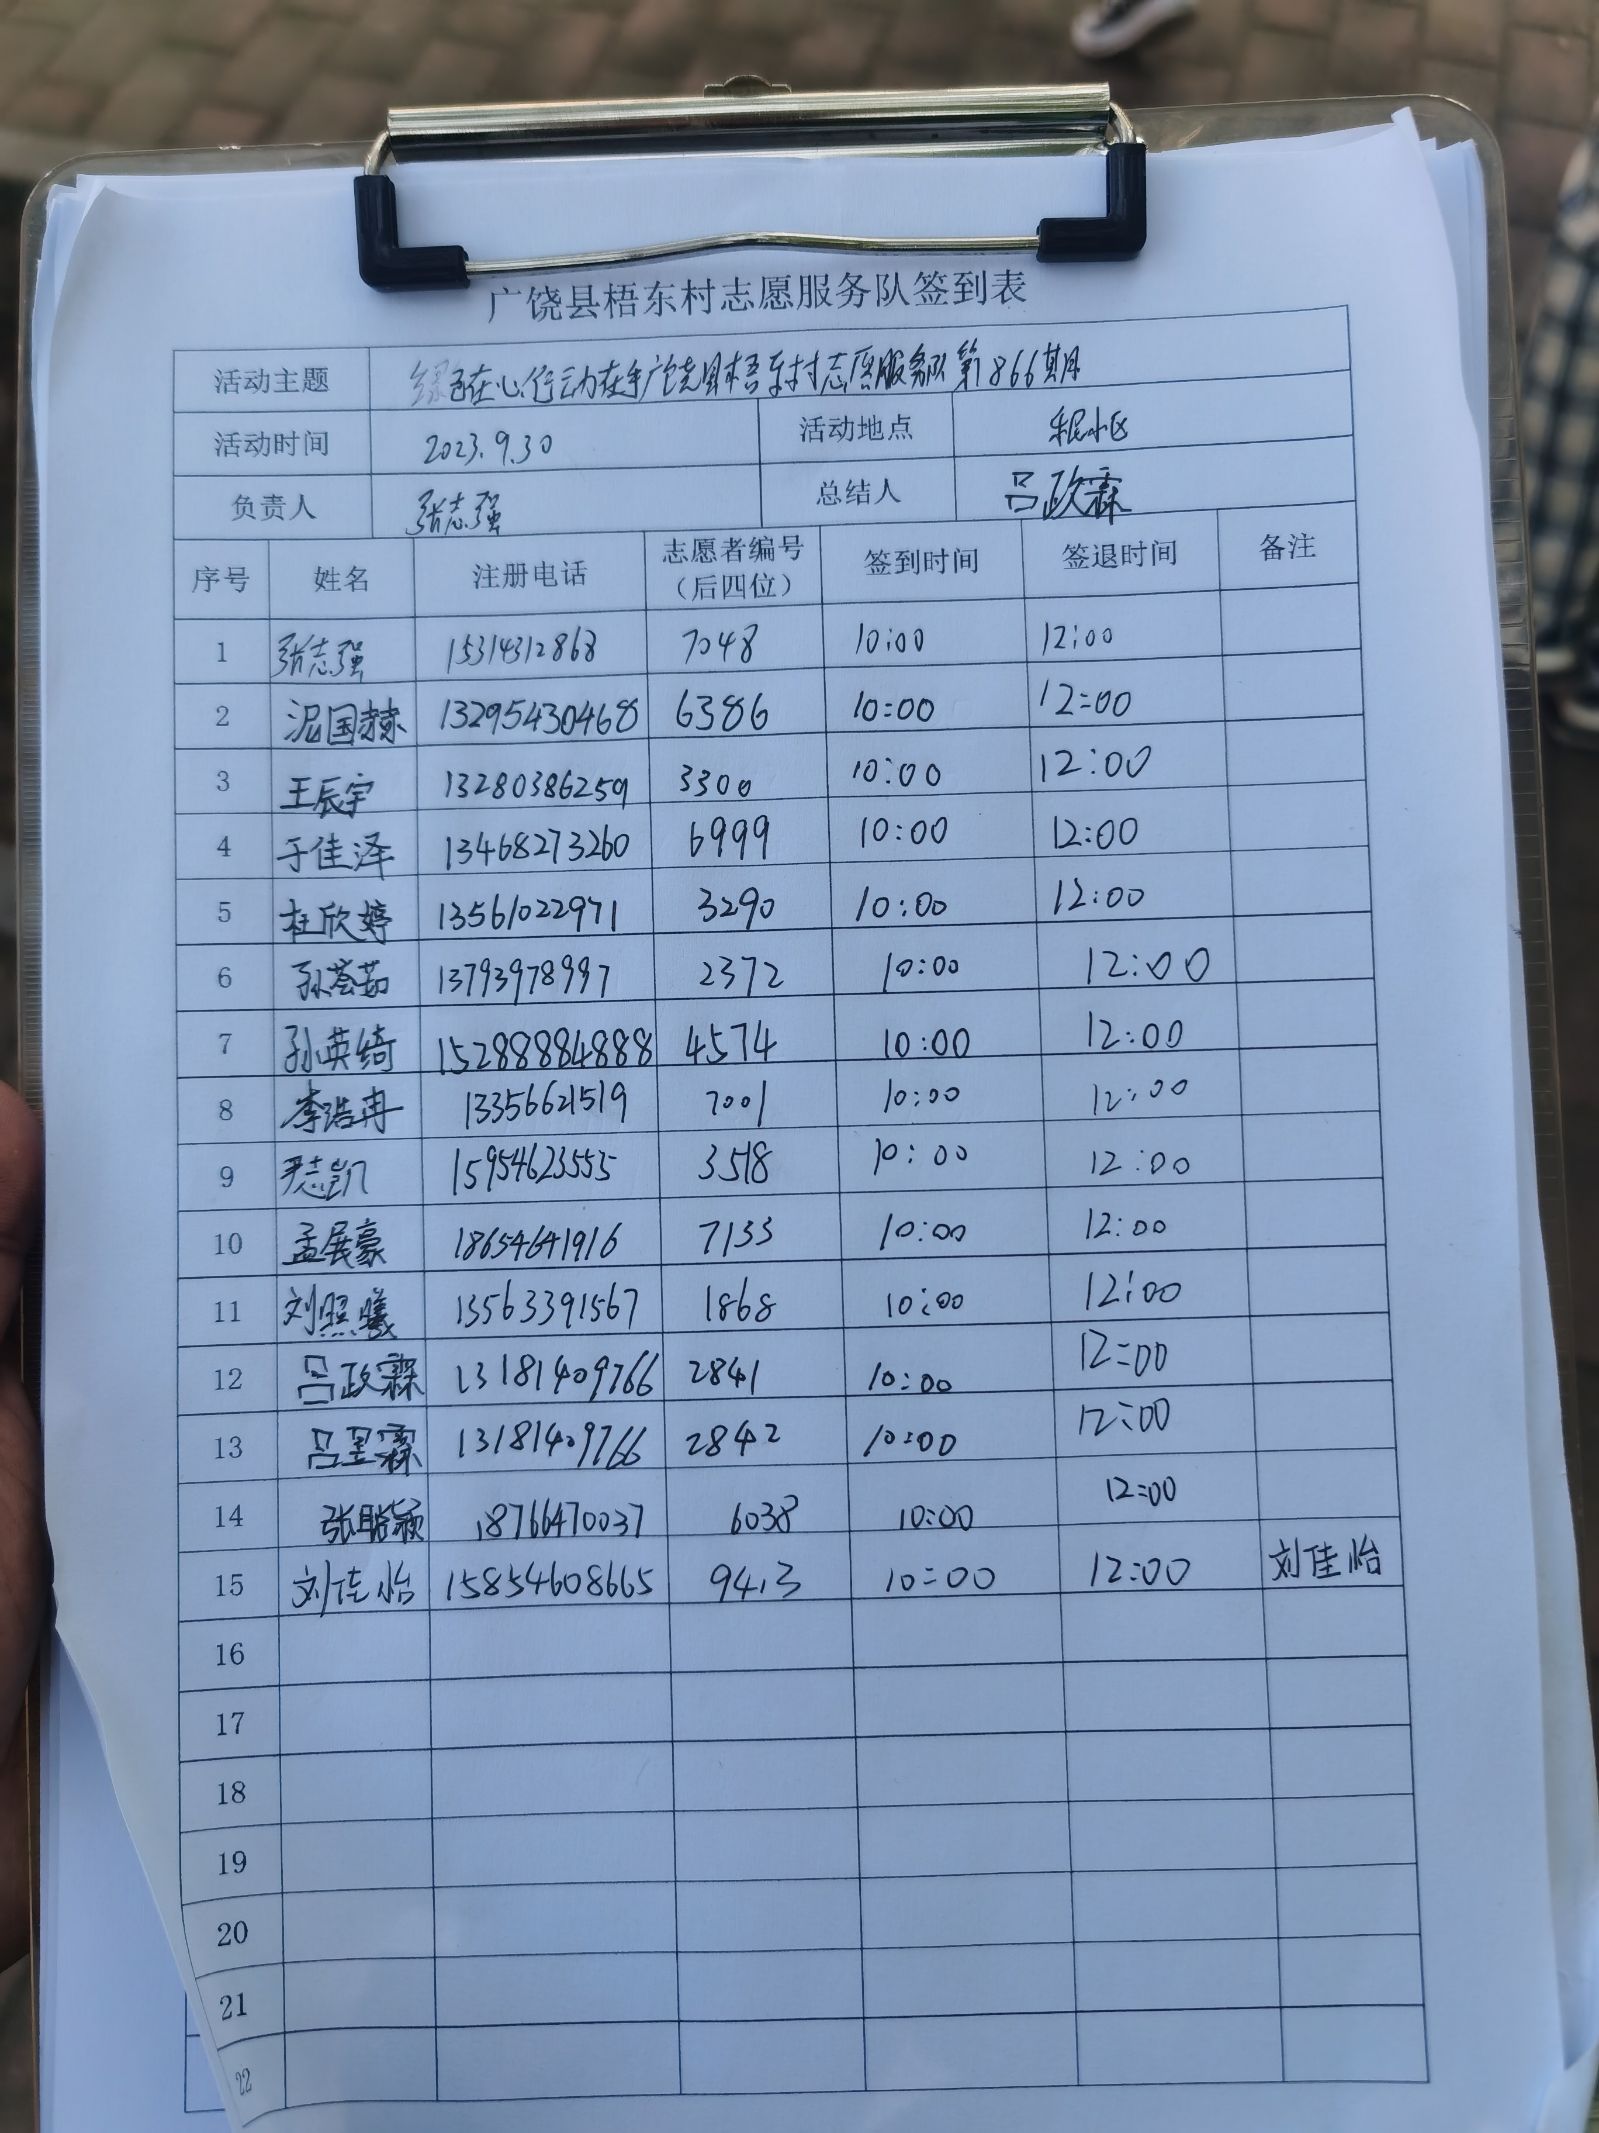 广饶县梧东村志愿服务队签到表
活动主题 绿色在心行动在手广饶县梧东村志愿服务队第866期
活动时间 2023.9.30 活动地点 小区
负责人 张志强 总结人 吕政霖
序号 姓名 注册电话 志愿者编号（后四位） 签到时间 签退时间 备注
1 张志强 15314312868 7048 10:00 12:00
2 泥国赫 13295430468 6386 10:00 12:00
3 王辰宇 13280386259 3300 10:00 12:00
4 于佳泽 13468273260 6999 10:00 12:00
5 杜欣婷 13561022971 3290 10:00 12:00
6 孙荟茹 13793978997 2372 10:00 12:00
7 孙英绮 15288884888 4574 10:00 12:00
8 李浩冉 13356621519 7001 10:00 12:00
9 志凯 15954623555 3518 10:00 12:00
10 孟展豪 18654641916 7133 10:00 12:00
11 刘照曦 13563391567 1868 10:00 12:00
12 吕政霖 13181409766 2841 10:00 12:00
13 吕昱霖 13181409766 2842 10:00 12:00
14 张聪颖 18766470037 6038 10:00 12:00
15 刘佳怡 15854608665 9413 10:00 12:00 刘佳怡
16
17
18
19
20
21
22